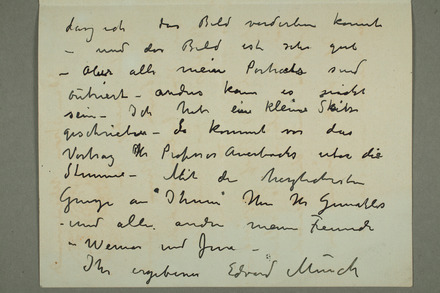 daß ich das Bild verdorben kommt
– und das Bild ist sehr gut
– Aber alle meine Portraits sind
outriert – anders kann es nicht
sein – Ich habe eine kleine Skitze
geschrieben – Es kommt vor das
Vortrag Professor Auerbachs über die
Stimme – Mit den herzlichsten
an
und alle andre meine Freunde
– Werner und
Ihr ergebener Edvard Munch